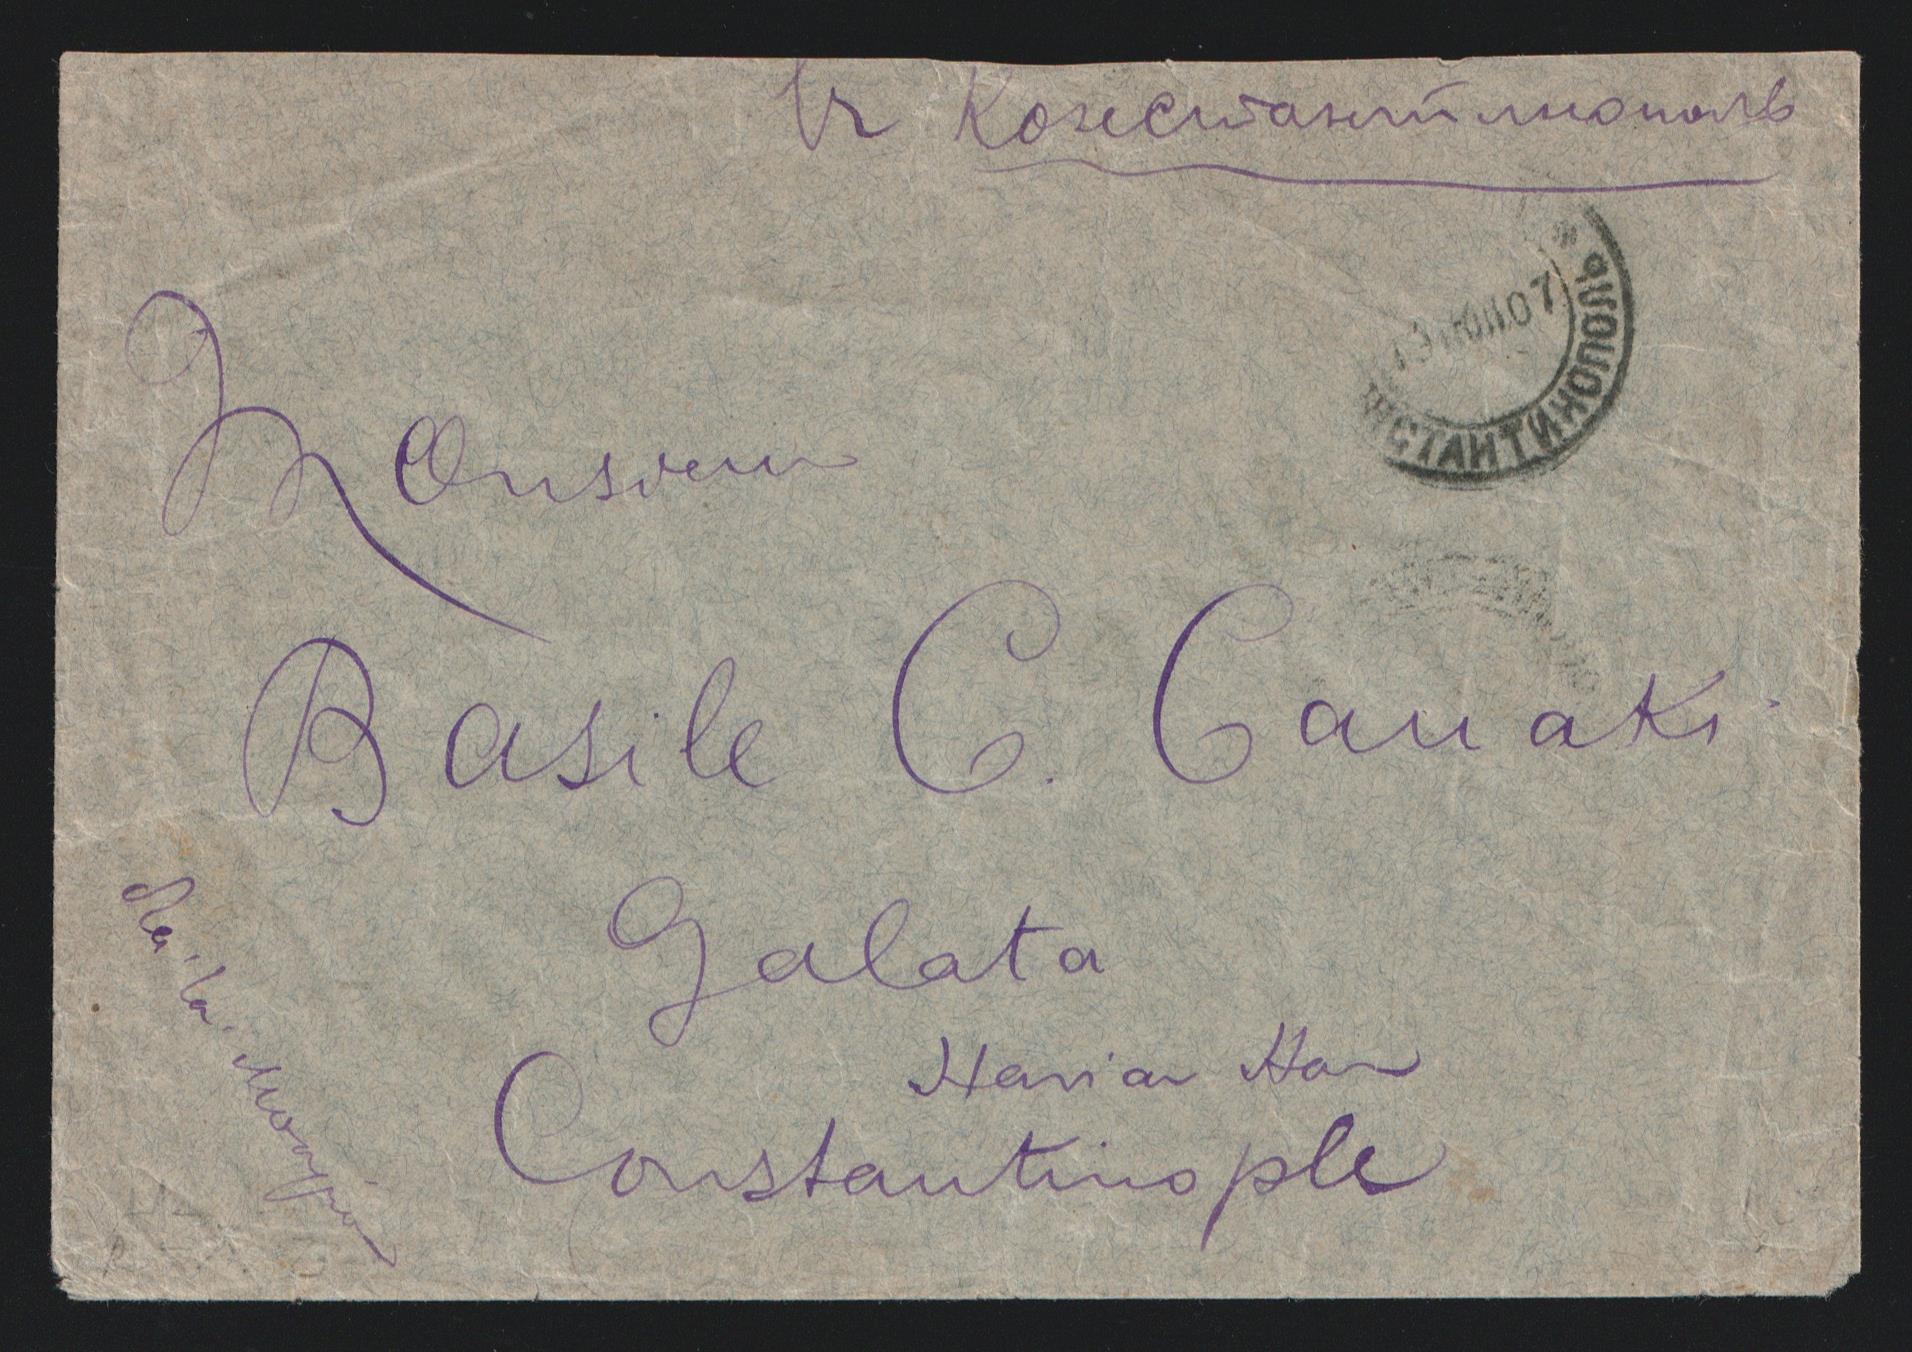 Константинополь
КОНСТАНТИНОПОЛЬ
07
Monsieur
Basile C. Canaki
Galata
Haviar Han
Constantinople